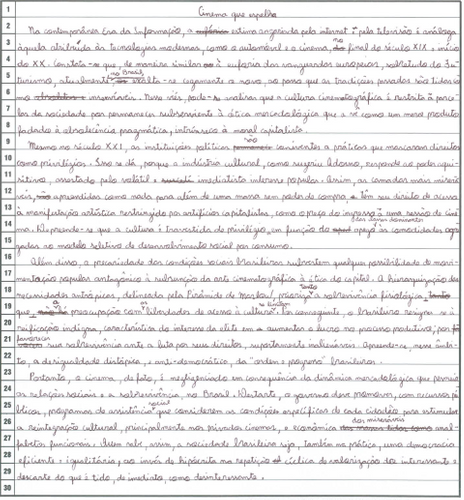 Cinema que espelha
Na contemporânea Era da Informação, a estima angariada pela internet e pela televisão é análoga
àquela atribuída às tecnologias modernas, como o automóvel e o cinema, no final do século XIX e início
do XX. Constata-se que, de maneira similar à euforia das vanguardas europeias, sobretudo do Fu-
turismo, atualmente, no Brasil, exalta-se cegamente o novo, ao passo que as tradições passadas são tidas co-
mo insensíveis. Nesse viés, pode-se analisar que a cultura cinematográfica é restrita à parce-
las da sociedade por permanecer subserviente à ótica mercadológica que a vê como um mero produto
fadado à obsolescência pragmática, intrínseca à moral capitalista.
Mesmo no século XXI, as instituições políticas são coniventes a práticas que mascaram direitos
como privilégios. Isso se dá, porque a indústria cultural, como sugeriu Adorno, responde ao poder aqui-
sitivo, assertado pelo volátil e imediatista interesse populas. Assim, as camadas mais miserá-
veis, apreendidas como nada para além de uma massa sem poder de compra, têm seu direito de acesso
à manifestação artística restringido por artifícios capitalistas, como o preço do ingresso à uma sessão de cine-
ma. Depreende-se que a cultura é travestida de privilégio em função do apego às comodidades
das classes dominantes
gadas ao modelo seletivo de desenvolvimento social por consumo.
Além disso, a precariedade das condições sociais brasileiras subvertem qualquer possibilidade de movi-
mentação popular antagônica à subversão da arte cinematográfica à ótica do capital. A hierarquização das
necessidades antrópicas, delineada pela Pirâmide de Maslow, prioriza tanto a sobrevivência fisiológica,
que a preocupação com as liberdades de acesso à cultura se findam. Por conseguinte, o brasileiro resigna-se à
reificação indigna, característica do interesse da elite em aumentar o lucro no processo produtivo, por
favorecer sua sobrevivência ante a luta por seus direitos, supostamente inalienáveis. Apreende-se, nesse âmbi-
to, a desigualdade distópica, e anti-democrática, da "ordem e progresso" brasileiros.
Portanto, o cinema, de fato, é negligenciado em consequência da dinâmica mercadológica que permeia
as relações sociais e a sobrevivência, no Brasil. Destarte, o governo deve promover, com recursos pú-
blicos, programas de assistência social que considerem as condições específicas de cada cidadão, para estimular
a reintegração cultural, principalmente nos privados cinemas, e econômica dos miseráveis anal-
fabetos funcionais. Quem sabe, assim, a sociedade brasileira seja, também na prática, uma democracia
eficiente e igualitária, ao invés de hipócrita na repetição cíclica da valorização dos interessante e
descarte do que é tido, de imediato, como desinteressante.